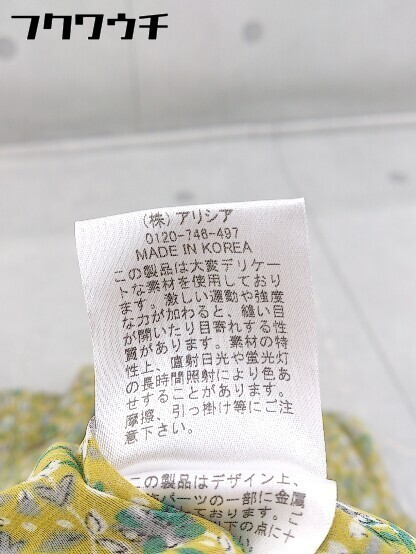 フクワウチ
(株)アリシア
0120-746-497
MADE IN KOREA
この製品は大変デリケー
トな素材を使用しており
ます。激しい運動や強度
な力が加わると、縫い目
が開いたり目寄れする性
質があります。素材の特
性上、直射日光や蛍光灯
の長時間照射により色あ
せすることがあります。
摩擦、引っ掛け等にご注
意下さい。
この製品はデザイン上、
パーツの一部に金属
下の点に十